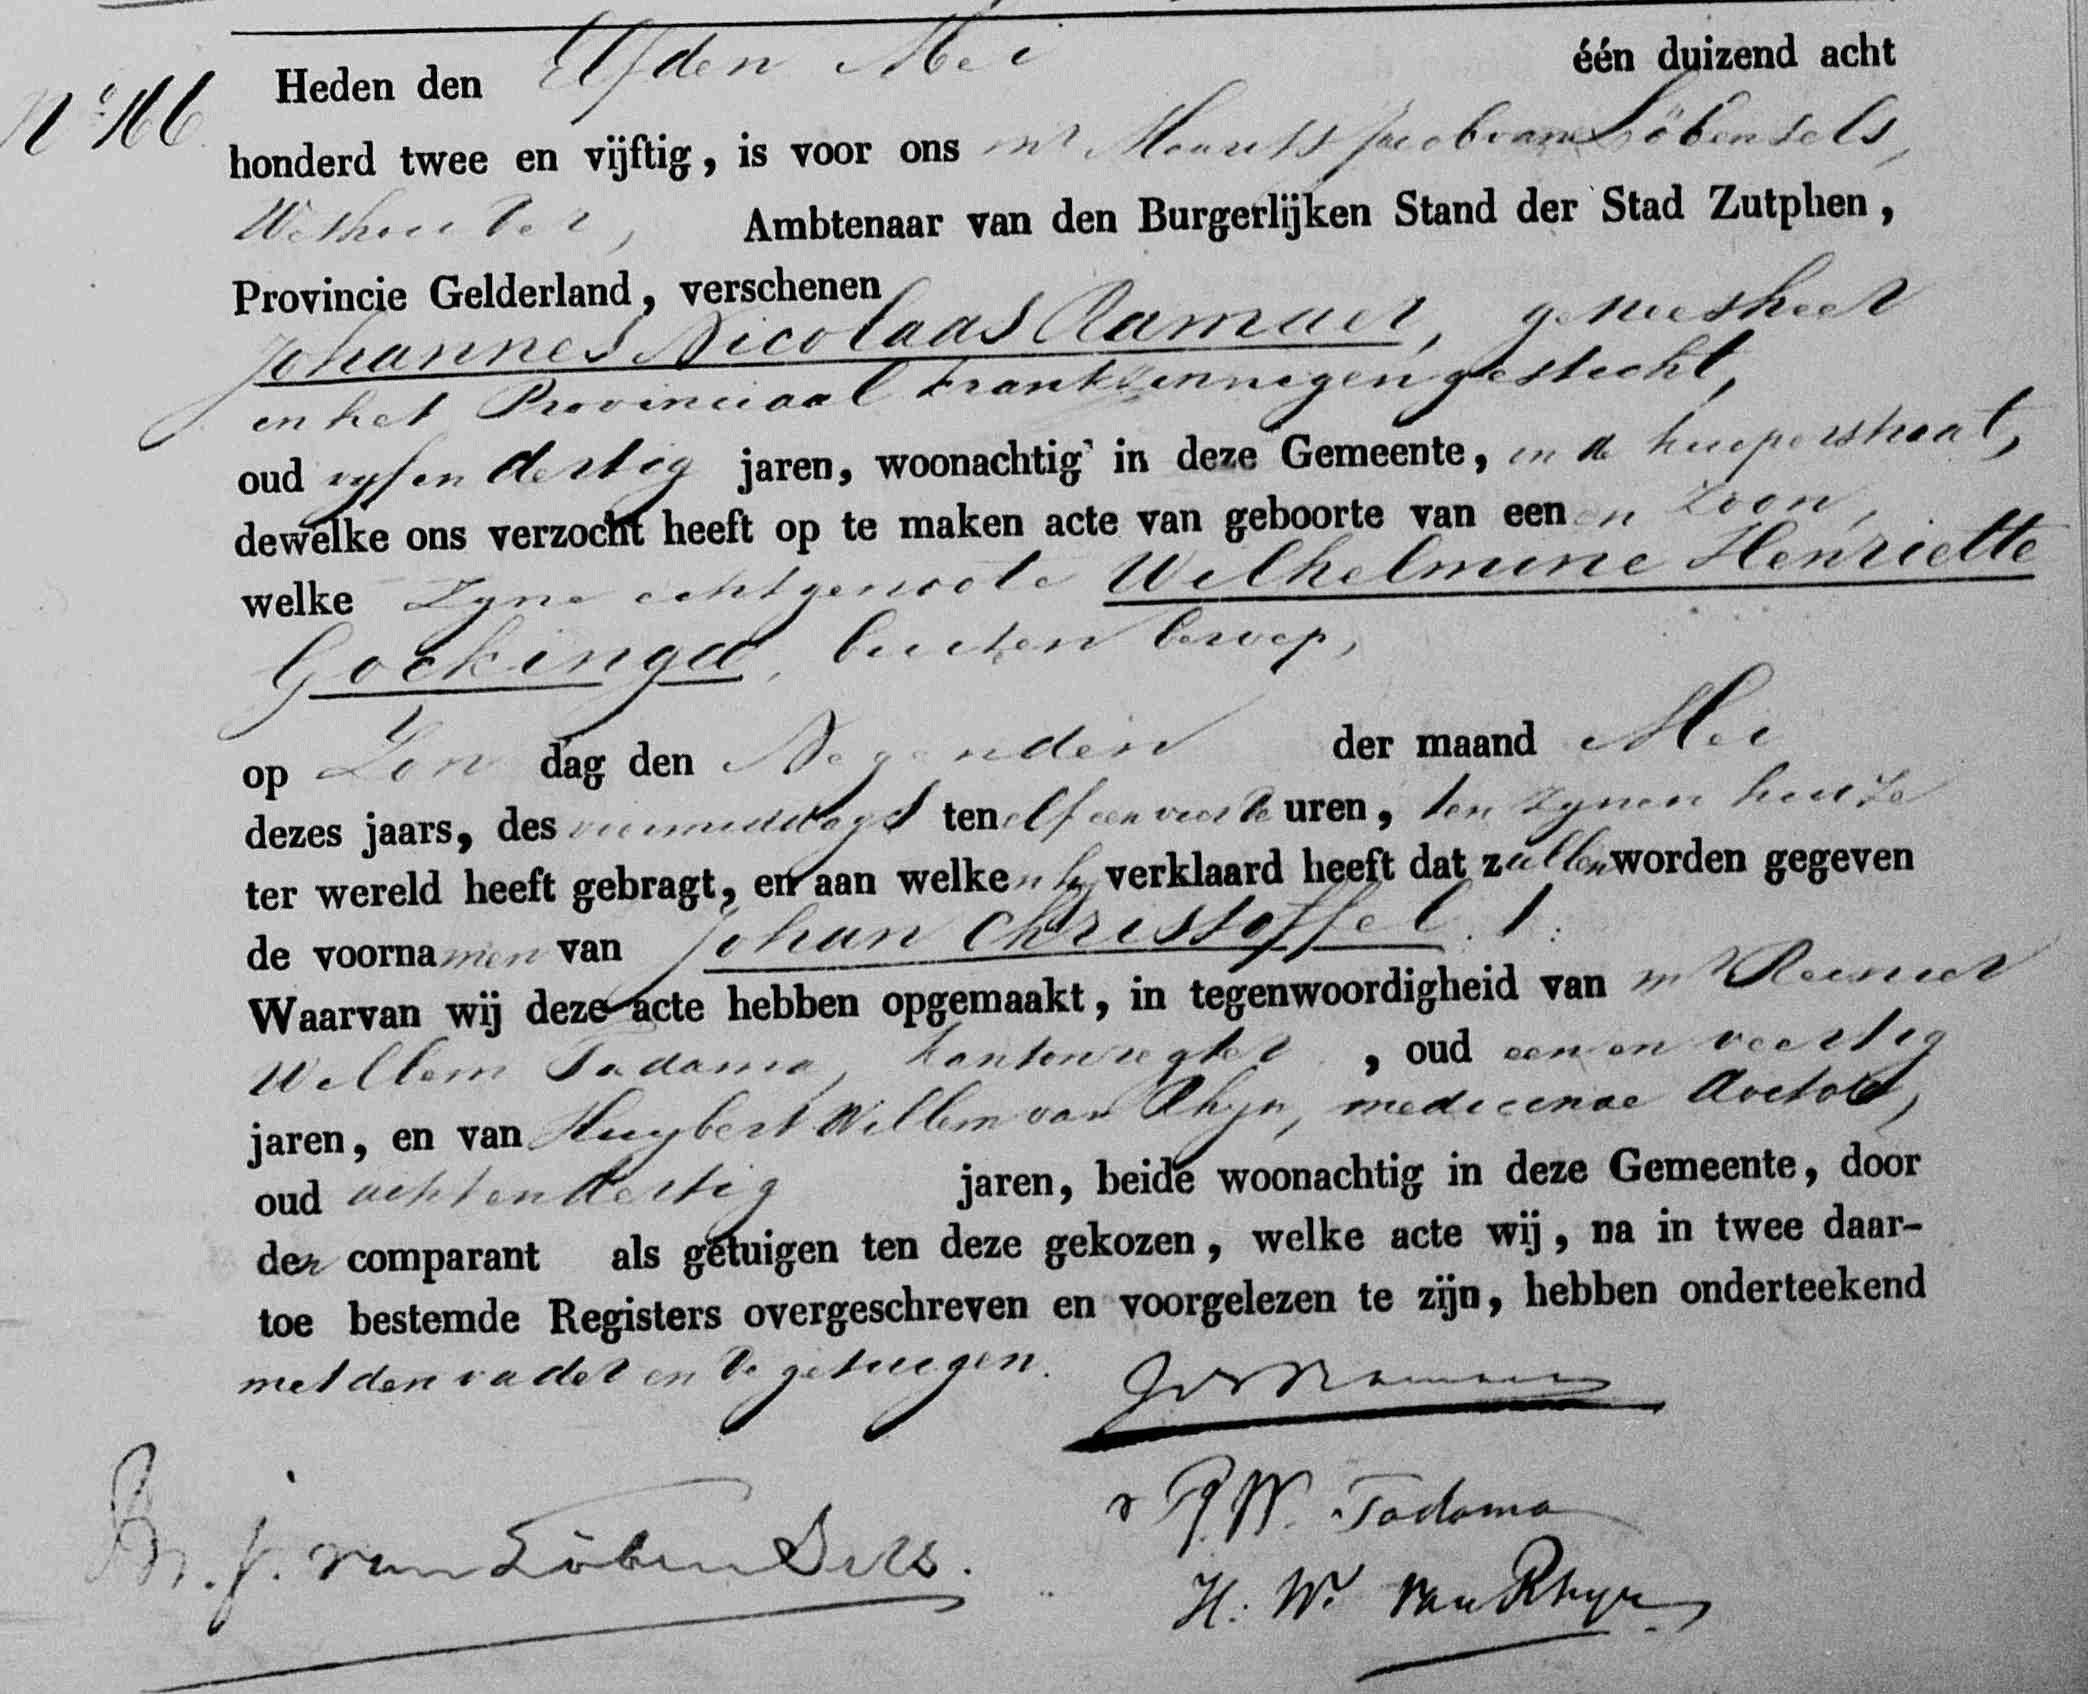 Nº 166
Heden den Elfden Mei één duizend acht
honderd twee en vijftig, is voor ons mr Maurits Jacob van Löbensels,
Wethouder, Ambtenaar van den Burgerlijken Stand der Stad Zutphen,
Provincie Gelderland, verschenen
Johannes Nicolaas Ramaer, geneesheer
in het Provinciaal krankzinnigengesticht,
oud vyf en dertig jaren, woonachtig in deze Gemeente, in de kuiperstraat,
dewelke ons verzocht heeft op te maken acte van geboorte van eenen zoon,
welke zyne echtgenoote Wilhelmine Henriette
Gockinga, buiten beroep,
op Zondag den Negenden der maand Mei
dezes jaars, des voormiddags ten elf een vierde uren, ten zynen huize
ter wereld heeft gebragt, en aan welken hy verklaard heeft dat zullen worden gegeven
de voornamen van Johan Christoffel. /:
Waarvan wij deze acte hebben opgemaakt, in tegenwoordigheid van mr Reinier
Willem Tadama, kantonregter, oud een en veertig
jaren, en van Huybert Willem van Rhyn, medicinae doctor,
oud acht en dertig jaren, beide woonachtig in deze Gemeente, door
den comparant als getuigen ten deze gekozen, welke acte wij, na in twee daar-
toe bestemde Registers overgeschreven en voorgelezen te zijn, hebben onderteekend
met den vader en de getuigen.
JNRamaer
R.W. Tadama
M. J. van Löben Sels.
H. W. van Rhyn